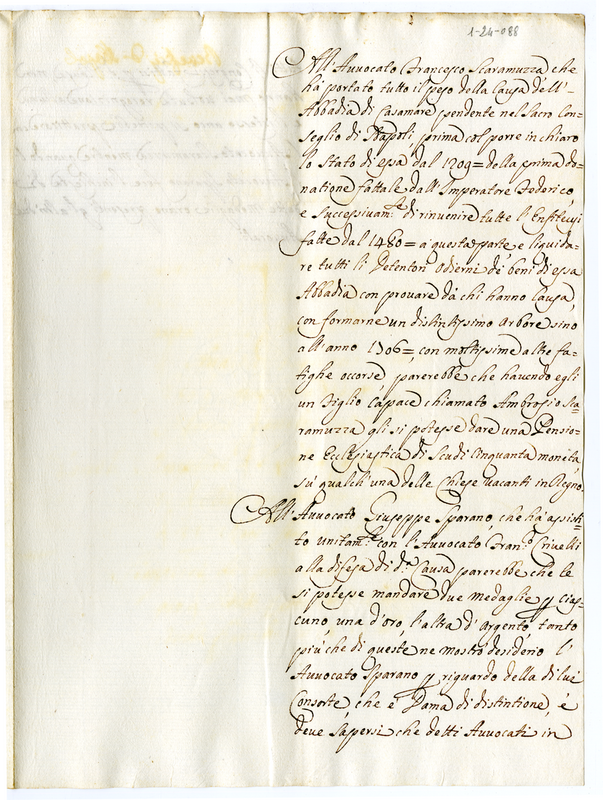 1-24-088
All' Avvocato Francesco Scaramuzza che
há portato tutto il peso della Causa dell'-
Abbadia di Casamare pendente nel Sacro Con-
seglio di Napoli, prima col porre in chiaro
lo stato di essa dal 1209= della prima do-
natione fattale dall' Imperatore Federico,
e successivam.te di rinvenire tutte l' Enfiteusi
fatte dal 1480= a questa parte, e liquida-
re tutti li Detentori odierni de' beni di essa
Abbadia con provare dá chi hanno Causa,
con formarne un distintissimo arbore sino
all' anno 1306=, con moltissime altre fa-
tighe occorse, parerebbe che havendo egli
un Figlio capace chiamato Ambrosio Sca-
ramuzza gli si potesse dare una Pensio-
ne Ecclesiastica di Scudi Cinquanta monita,
sú qualch' una delle Chiese vacanti in Regno.
All' Avvocato Giuseppe Sparano, che há assisti-
to unitam.te con l' Avvocato Fran.co Crivelli
alla difesa di d.a Causa parerebbe che le
si potesse mandare due medaglie p cias-
cuno, una d'oro, l'altra d' argento, tanto
più che di queste ne mostrò desiderio l'
Avvocato Sparano p riguardo della di lui
Consorte, che é Dama di distintione, é
deve sapersi che detti Avvocati in